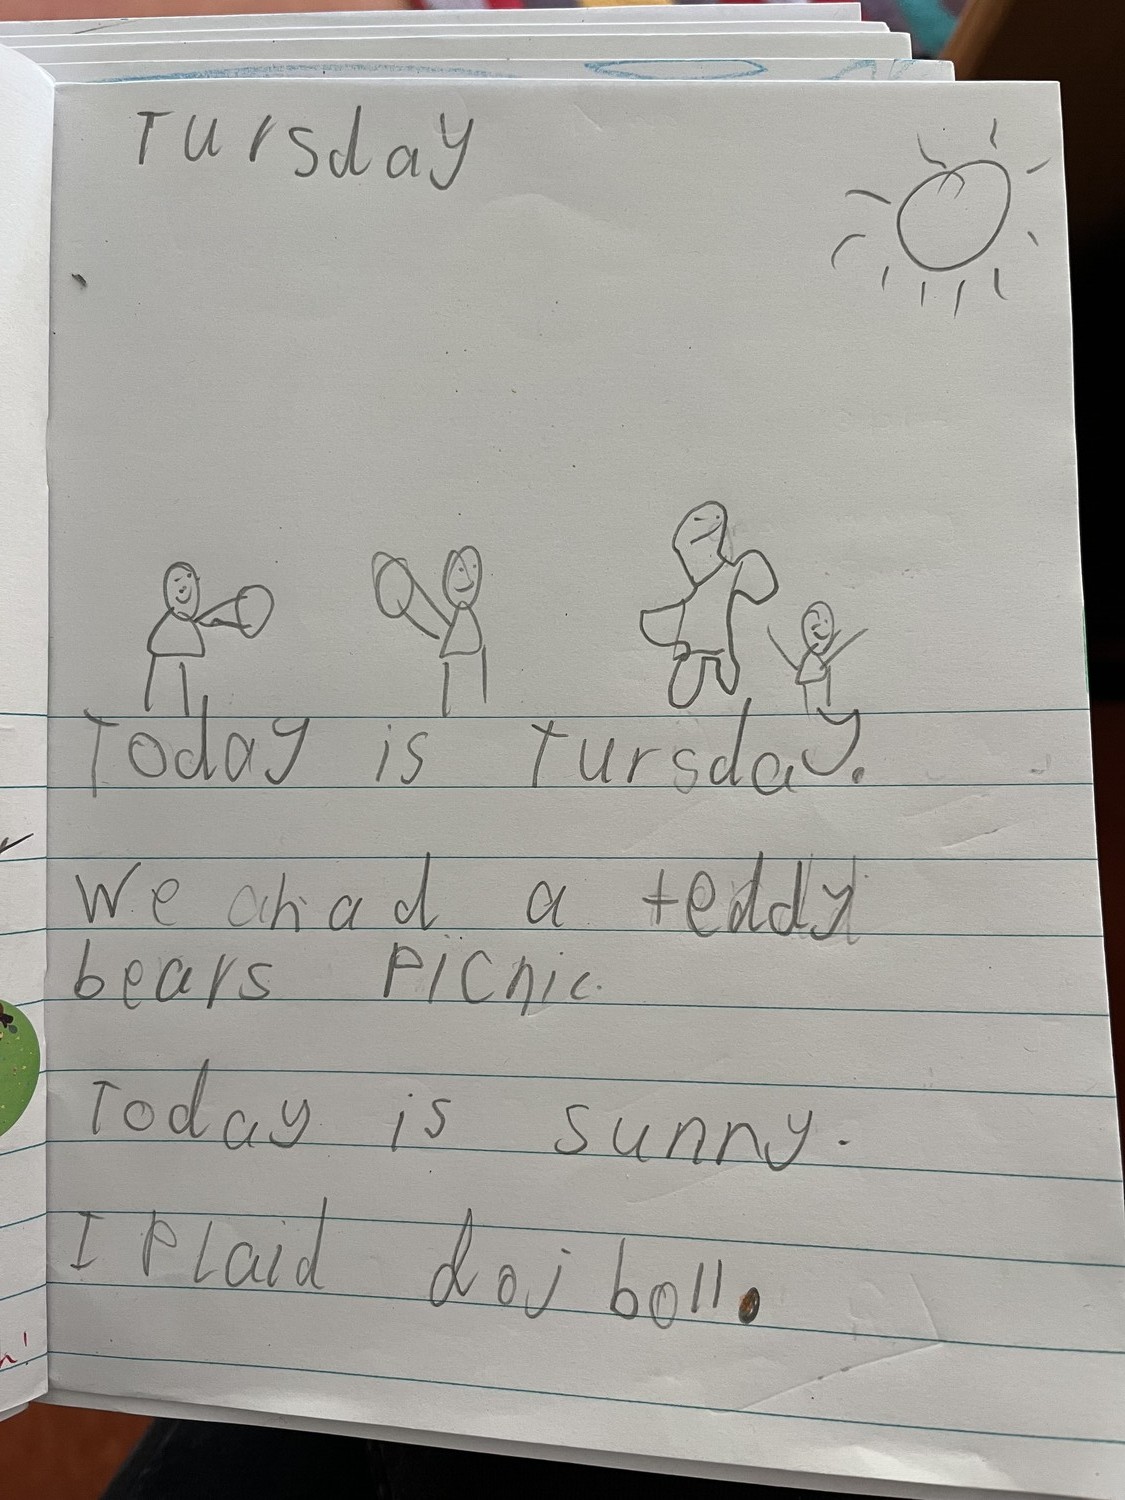 Tursday
Today is Tursday.
We ahad a teddy
bears PiCnic.
Today is sunny.
I Plaid doj boll.